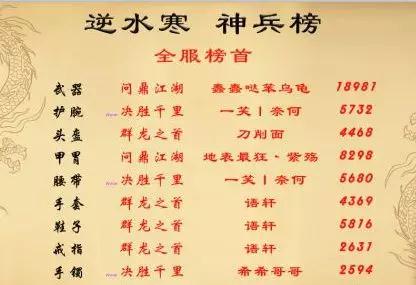 逆水寒 神兵榜
全服榜首
武器 问鼎江湖 蠢蠢哒苯乌龟 18981
护腕 决胜千里 一笑丨奈何 5732
头盔 群龙之首 刀削面 4468
甲胄 问鼎江湖 地表最狂·紫殇 8298
腰带 决胜千里 一笑丨奈何 5680
手套 群龙之首 语轩 4369
鞋子 群龙之首 语轩 5816
戒指 群龙之首 语轩 2631
手镯 决胜千里 希希哥哥 2594